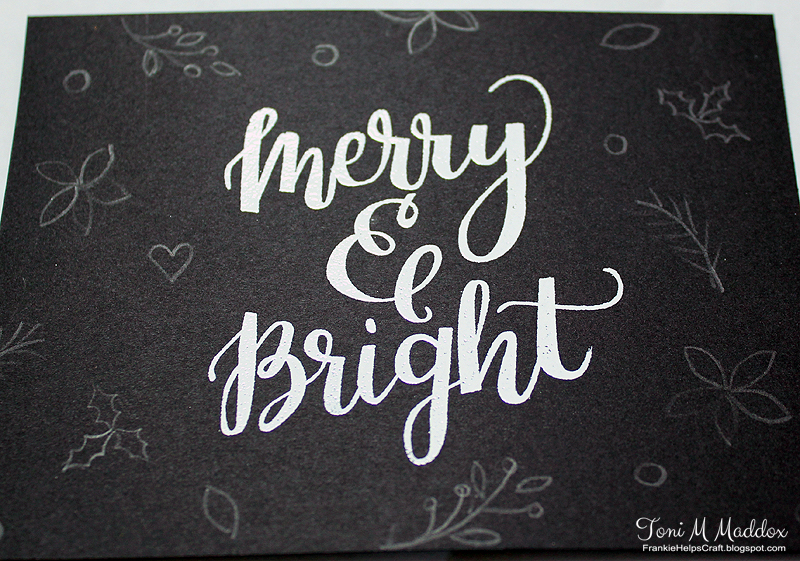 Merry
&
Bright
Toni M Maddox
FrankieHelpsCraft.blogspot.com